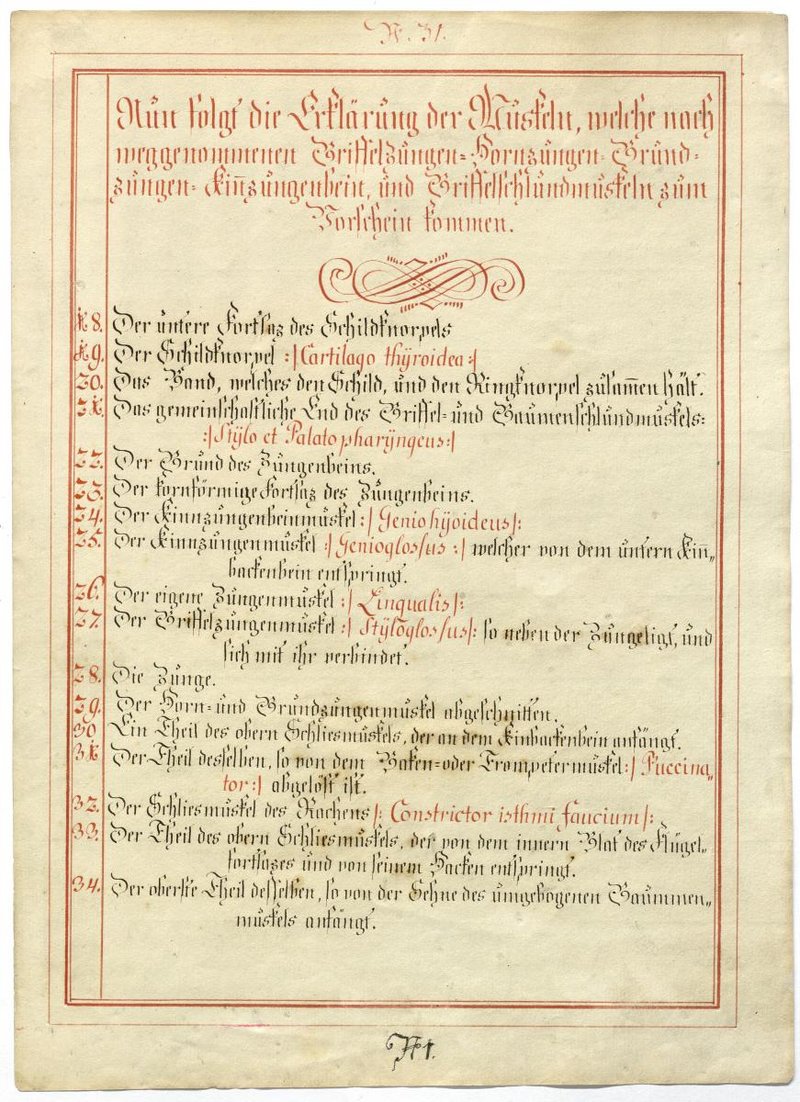 N. 31.
Nun folgt die Erklärung der Muskeln, welche nach
weggenommenen Griffelzungen- Hornzungen- Grund-
zungen- Kin̅zungenbein, und Griffelschlundmuskeln zum
Vorschein kommen.
18. Der untere Fortsaz des Schildknorpels
19. Der Schildknorpel :/Cartilago thÿroidea:/
20. Das Band, welches den Schild, und den Ringknorpel zusam̅en hält.
21. Das gemeinschaftliche End des Griffel- und Gaumenschlundmuskels:
:/Stÿlo et Palatopharÿngeus:/
22. Der Grund des Zungenbeins.
23. Der kornförmige Fortsaz des Zungenbeins.
24. Der Kinnzungenbeinmuskel :/ Geniohÿoideus/:
25. Der Kinnzungenmuskel :/Genioglossus :/ welcher von dem untern Kin̅„
backenbein entspringt.
26. Der eigene Zungenmuskel :/ Lingualis/:
27. Der Griffelzungenmuskel :/ Stÿloglossus/: so neben der Zunge ligt, und
sich mit ihr verbindet.
28. Die Zunge.
29. Der Horn- und Grundzungenmuskel abgeschnitten.
30 Ein Theil des obern Schliesmuskels, der an dem Kinbackenbein anfängt.
31 Der Theil desselben, so von dem Baken- oder Trompetermuskel :/ Buccina„
tor:/ abgelöst ist.
32. Der Schliesmuskel des Rachens/: Constrictor isthmi faucium/:
33. Der Theil des obern Schliesmuskels, der von dem innern Blat des Flügel„
fortsazes und von seinem Hacken entspringt.
34. Der oberste Theil desselben, so von der Sehne des umgebogenen Gaummen„
muskels anfängt.